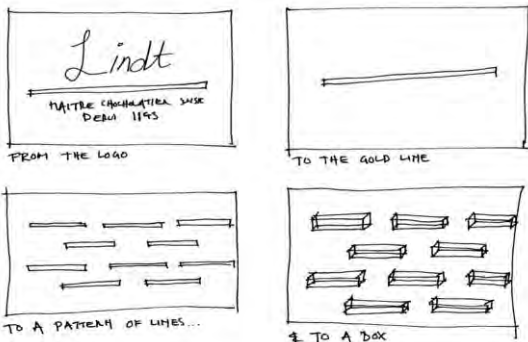 Lindt
MAITRE CHOCHOLATIER SUISSE
DEPUI 1845
FROM THE LOGO
TO THE GOLD LINE
TO A PATTERN OF LINES...
& TO A BOX